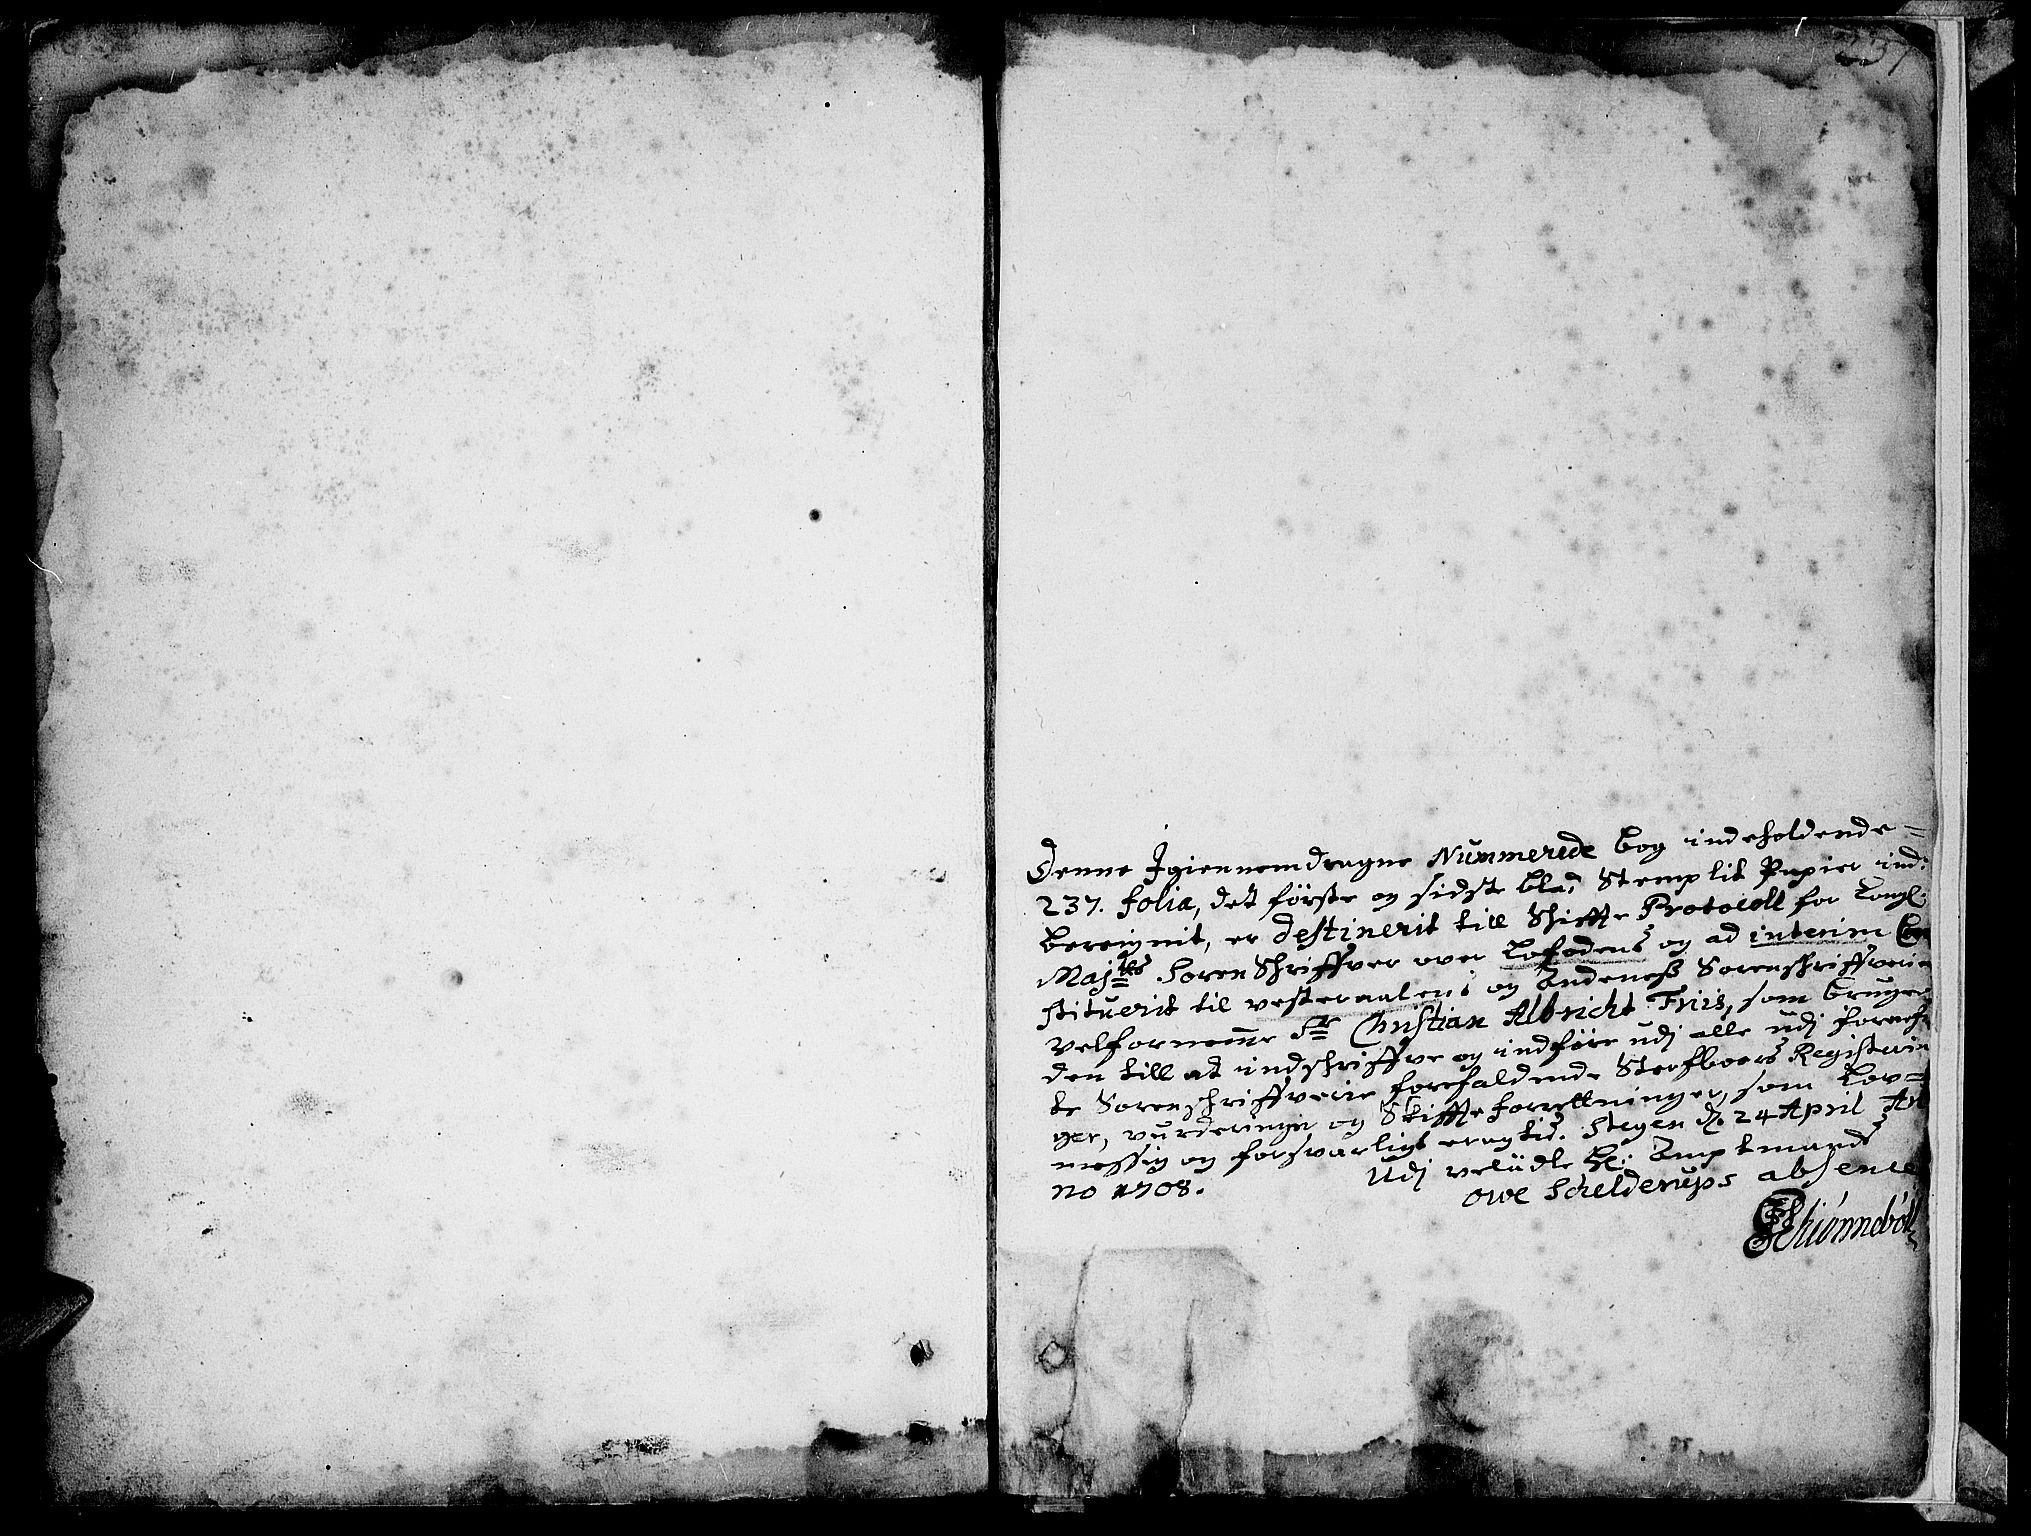 237
Denne Igiennemdragne Nummerede bog indeholdende =
237. folia, det förste og sidste blad Stemplit Papier ind:
bereignit, er destinerit till Schiffte Protocoll for Kongl:
Maj:ts SorenSchriffver over Lofodens og ad interim Con
stituerit til vesteraalens og Andeness Sorenschriffverie
velfornemme Sr Christian Albricht Friis, som bruges
den till at indschriffve og indföre udj alle udj forneffn
te Sorenschriffverie forefaldende Sterfboers Registerin
ger, vurderinger og Skiffte forrettninger, som Lov=
messig og forsvarligt eragtis. Stegen d. 24 April An
no 1708.
Udj velædle Hr: Amptmands
Owe Schelderups absence
Schiönneböll